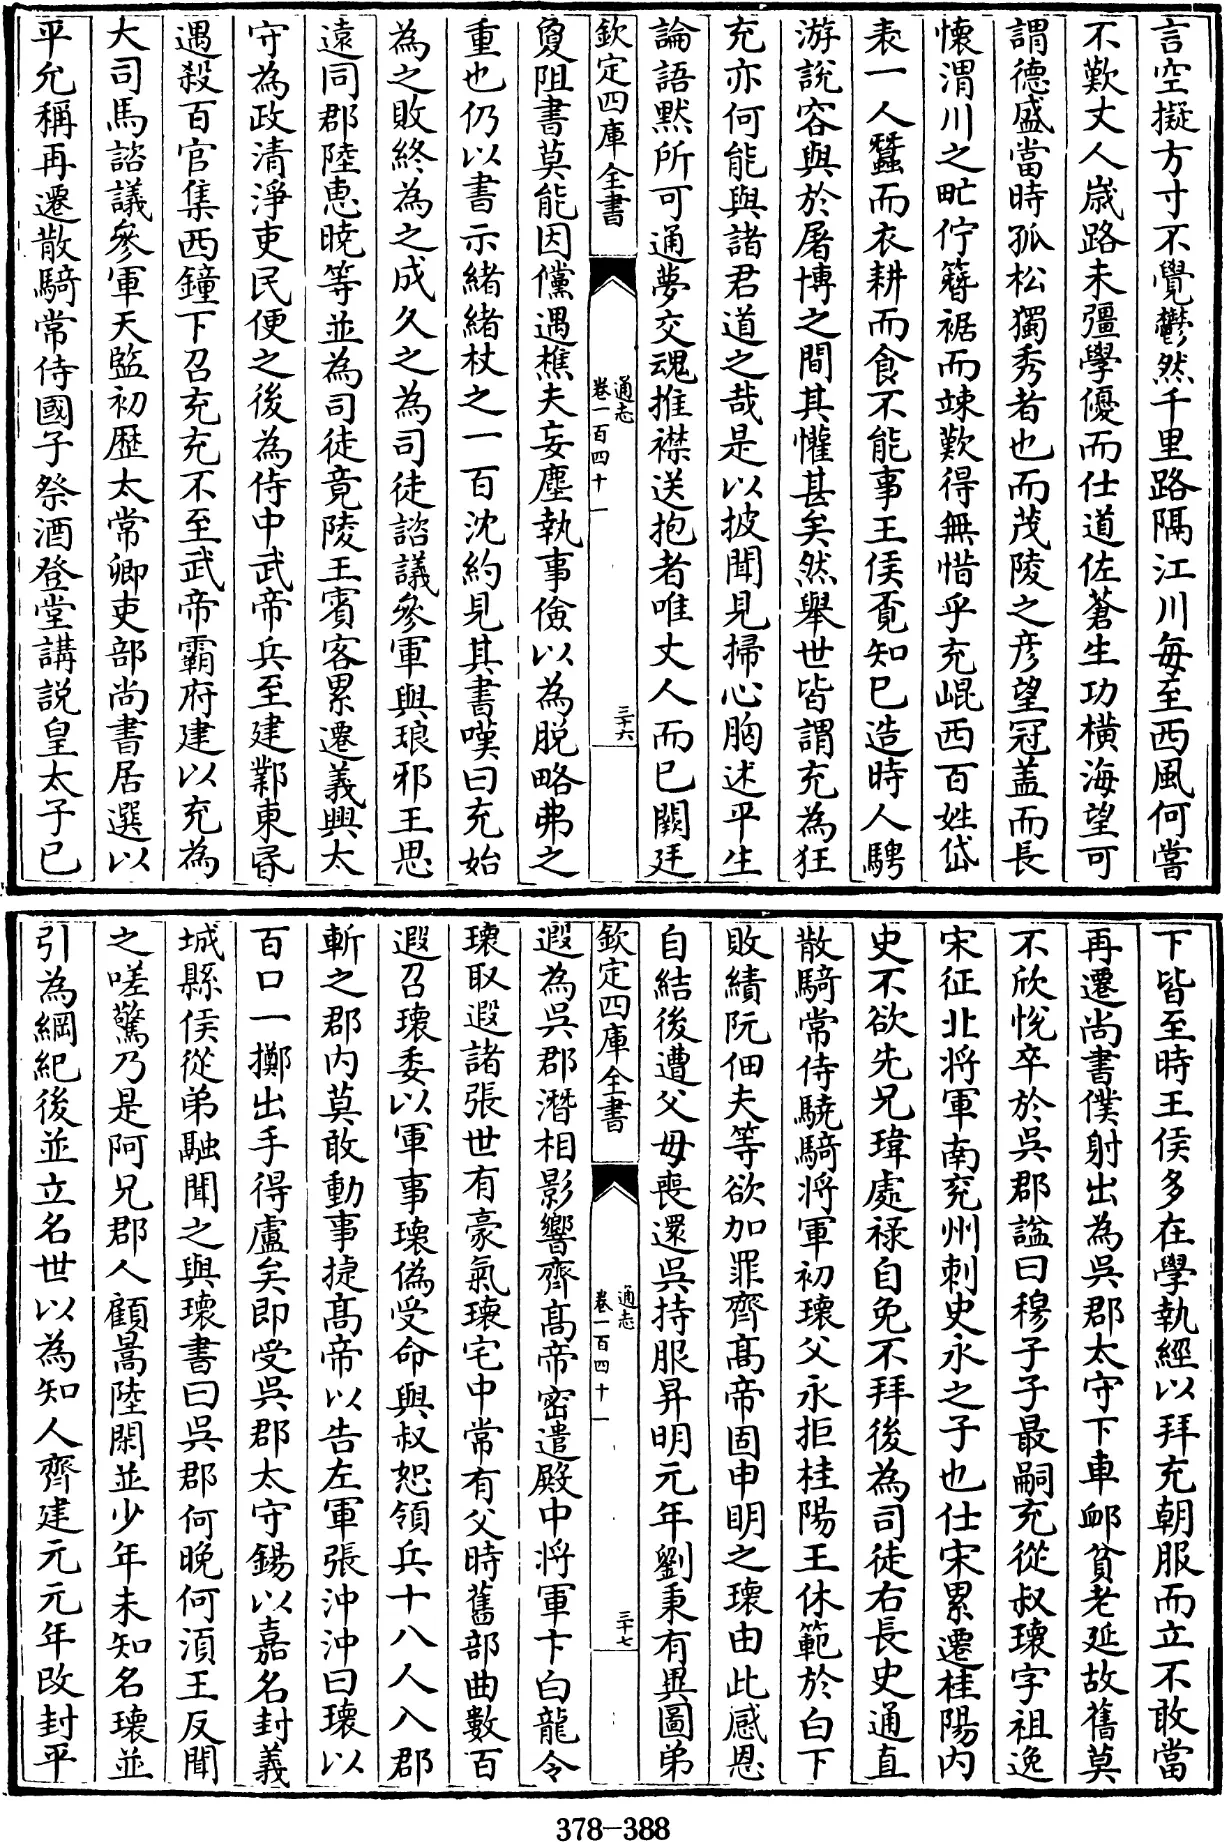 言空擬方寸不覺鬱然千里路隔江川每至西風何嘗
不歎丈人歲路未彊學優而仕道佐蒼生功橫海望可
謂德盛當時孤松獨秀者也而茂陵之彦望冠蓋而長
懷渭川之甿佇簪裾而竦歎得無惜乎充崐西百姓岱
表一人蠶而衣耕而食不能事王侯覓知已造時人騁
游說容與於屠博之間其懽甚矣然舉世皆謂充為狂
充亦何能與諸君道之哉是以披聞見掃心胸述平生
論語默所可通夢交魂推襟送抱者唯丈人而已闕廷
敻阻書莫能因儻遇樵夫妄塵執事儉以為脱略弗之
重也仍以書示緒緒杖之一百沈約見其書嘆曰充始
為之敗終為之成久之為司徒諮議參軍與琅邪王思
遠同郡陸惠曉等並為司徒竟陵王賓客累遷義興太
守為政清淨吏民便之後為侍中武帝兵至建鄴東昏
遇殺百官集西鐘下召充充不至武帝霸府建以充為
大司馬諮議參軍天監初歷太常卿吏部尚書居選以
平允稱再遷散騎常侍國子祭酒登堂講説皇太子已
欽定四庫全書
通志
卷一百四十一
三十六
下皆至時王侯多在學執經以拜充朝服而立不敢當
再遷尚書僕射出為吳郡太守下車卹貧老延故舊莫
不欣悅卒於吳郡諡曰穆子子最嗣充從叔瓌字祖逸
宋征北將軍南兖州刺史永之子也仕宋累遷桂陽内
史不欲先兄瑋處禄自免不拜後為司徒右長史通直
散騎常侍驍騎將軍初瓌父永拒桂陽王休範於白下
敗績阮佃夫等欲加罪齊髙帝固申明之瓌由此感恩
自結後遭父母喪還吳持服昇明元年劉秉有異圖弟
遐為吳郡潛相影響齊髙帝密遣殿中將軍卞白龍令
瓌取遐諸張世有豪氣瓌宅中常有父時舊部曲數百
遐召瓌委以軍事瓌偽受命與叔恕領兵十八人入郡
斬之郡内莫敢動事捷髙帝以告左軍張沖沖曰瓌以
百口一擲出手得盧矣即受吳郡太守錫以嘉名封義
城縣侯從弟融聞之與瓌書曰吳郡何晚何湏王反聞
之嗟驚乃是阿兄郡人顧暠陸閑並少年未知名瓌並
引為綱紀後並立名世以為知人齊建元元年改封平
欽定四庫全書
通志
卷一百四十一
三十七
378-388